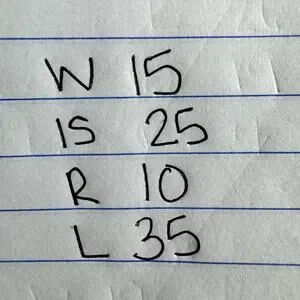 W 15
IS 25
R 10
L 35